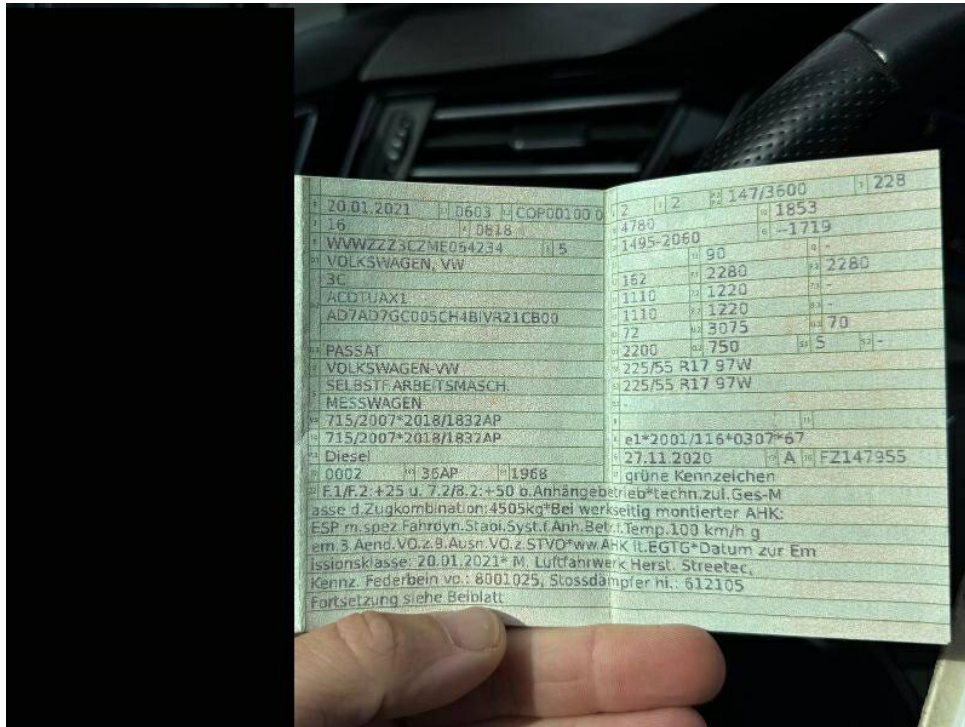 20.01.2021 0603 COP00100 0
16 0818
WVWZZZ3CZME054234 5
VOLKSWAGEN, VW
3C
ACDTUAX1
AD7AD7GC005CH4BIVR21CB00
PASSAT
VOLKSWAGEN-VW
SELBSTF.ARBEITSMASCH.
MESSWAGEN
715/2007*2018/1832AP
715/2007*2018/1832AP
Diesel
0002 36AP 1968
2 2 147/3600 228
4780 1853
1495-2060 --1719
90 -
162 2280 2280
1110 1220 -
1110 1220 -
72 3075 70
2200 750 5 -
225/55 R17 97W
225/55 R17 97W
-
e1*2001/116*0307*67
27.11.2020 A FZ147955
grüne Kennzeichen
F.1/F.2:+25 u. 7.2/8.2:+50 b.Anhängebetrieb*techn.zul.Ges-M
asse d.Zugkombination:4505kg*Bei werkseitig montierter AHK:
ESP m.spez.Fahrdyn.Stabi.Syst.f.Anh.Betr.f.Temp.100 km/h g
em.3.Aend.VO.z.9.Ausn.VO.z.STVO*ww.AHK lt.EGTG*Datum zur Em
issionsklasse: 20.01.2021* M. Luftfahrwerk Herst. Streetec,
Kennz. Federbein vo.: 8001025, Stossdämpfer hi.: 612105
Fortsetzung siehe Beiblatt